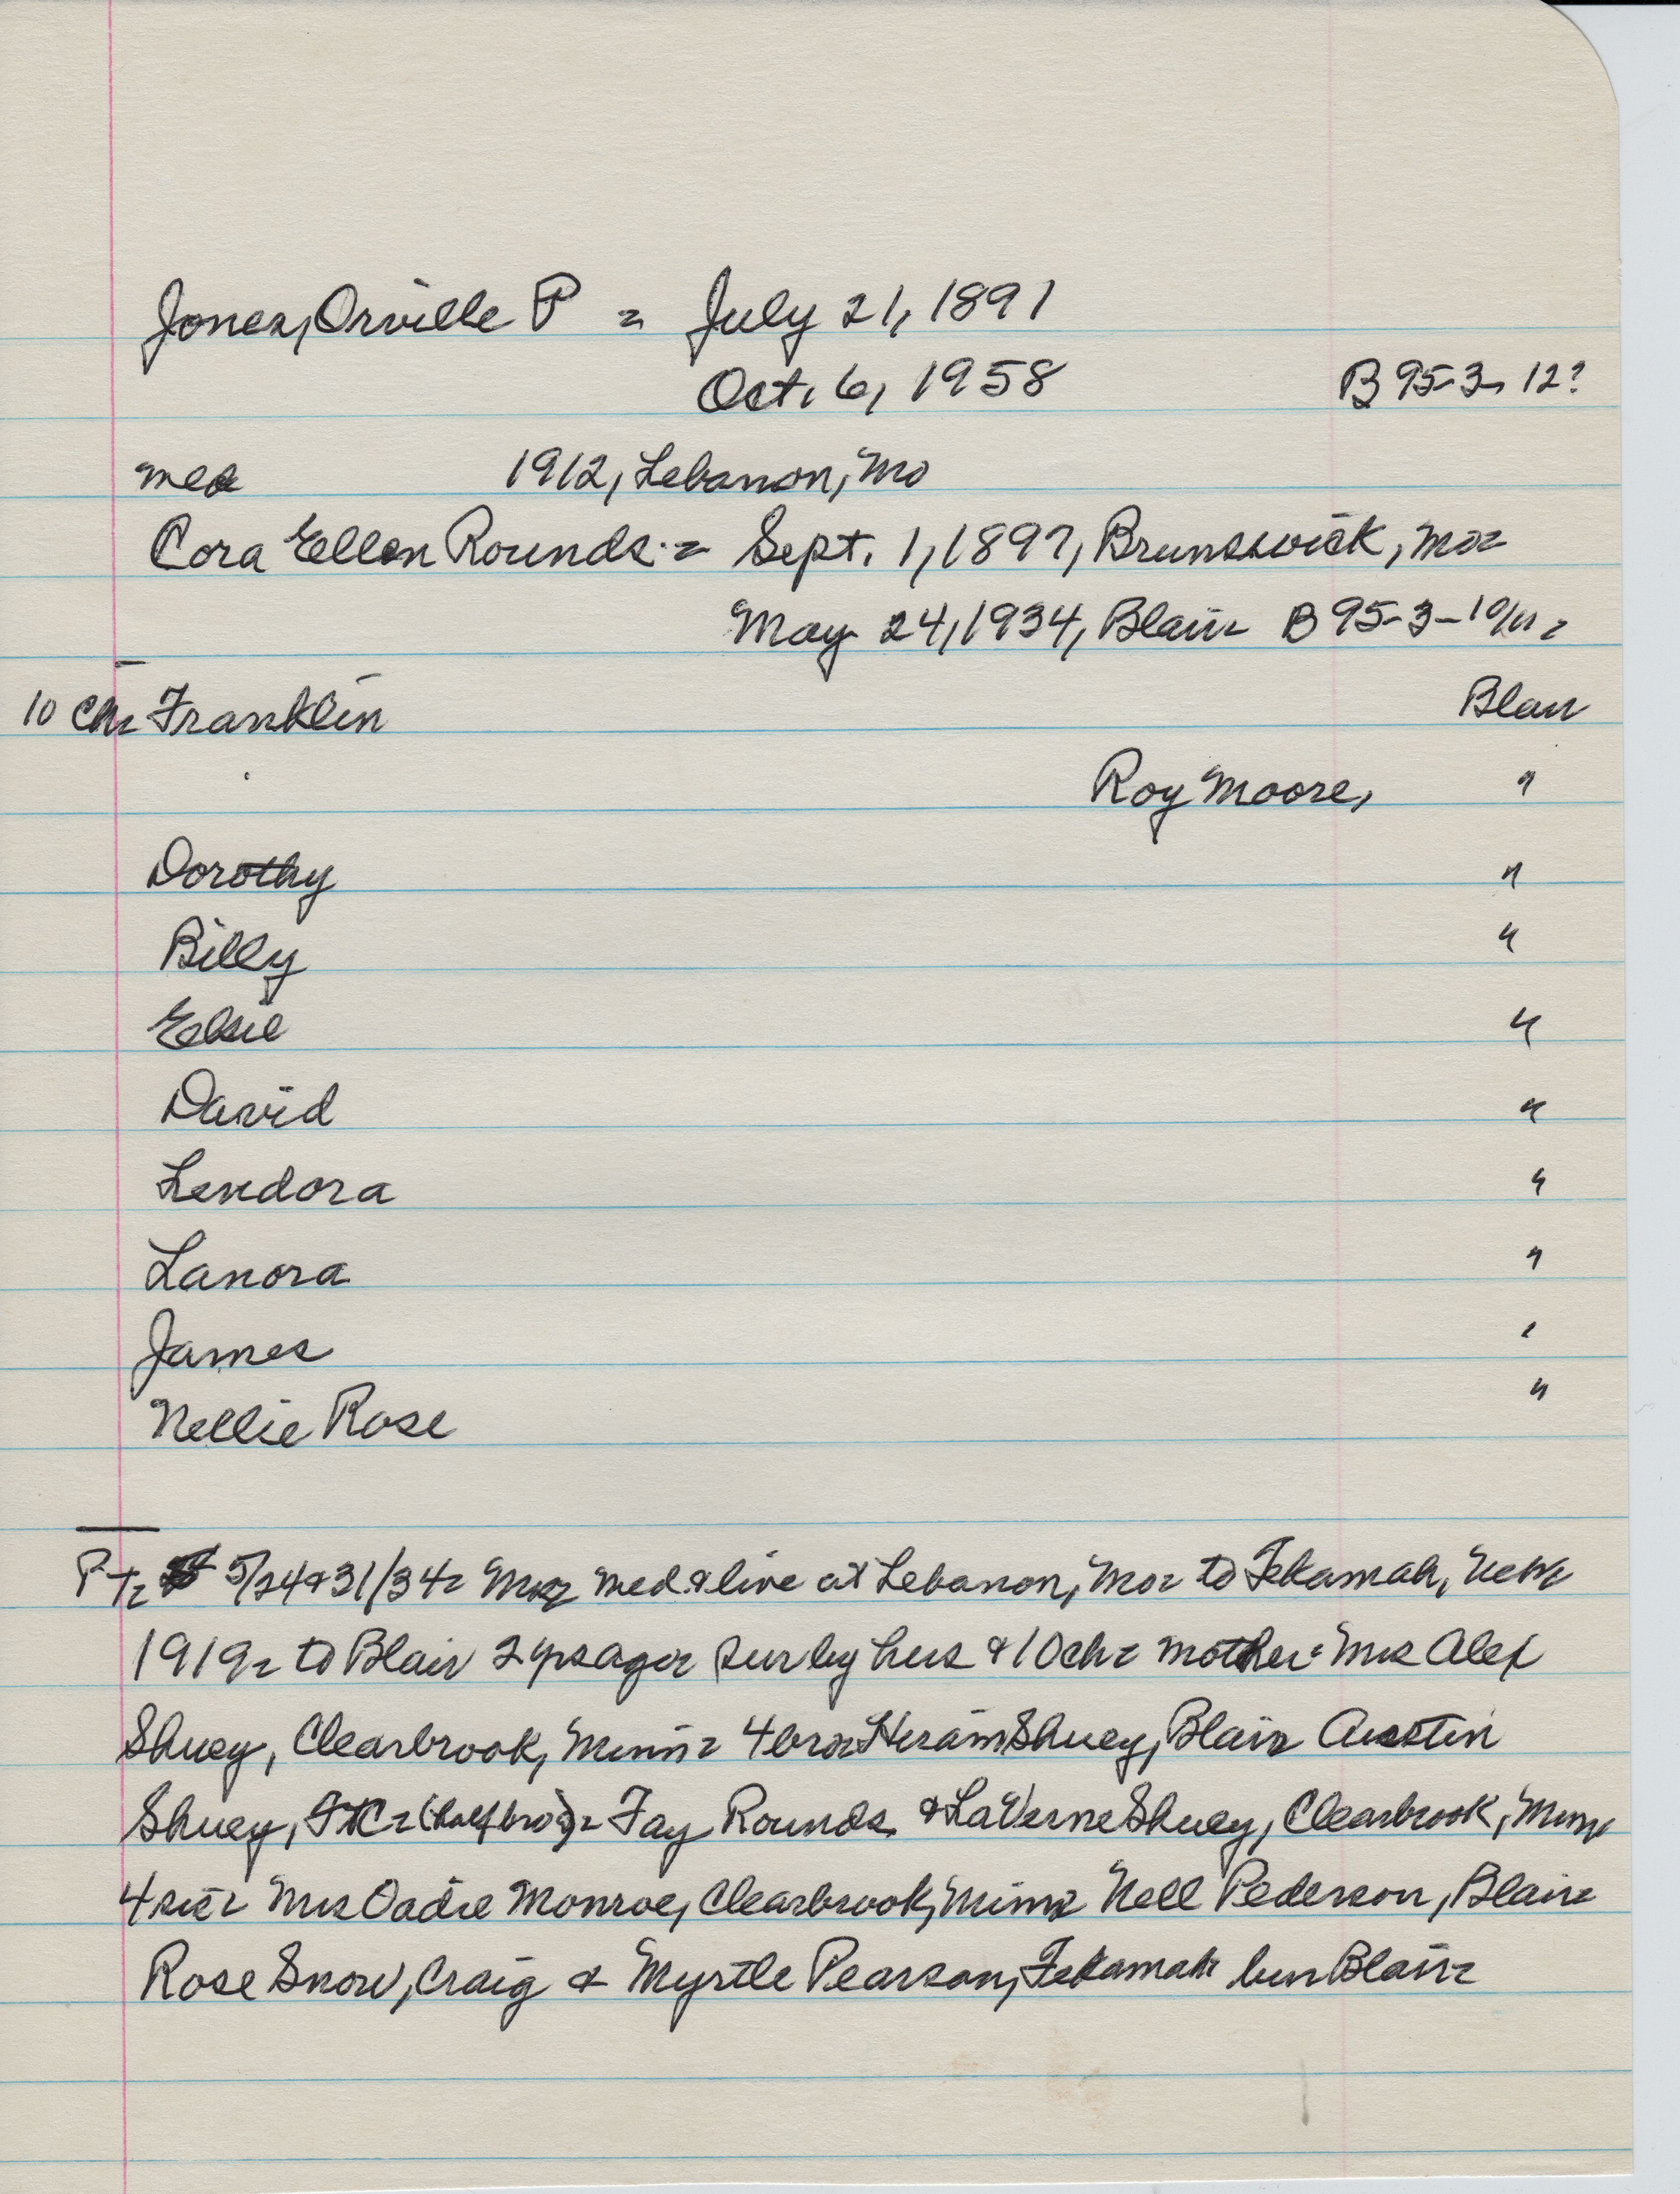 Jones, Orville P = July 21, 1891
Oct. 6, 1958 B 95-3-12?
med 1912, Lebanon, Mo
Cora Ellen Rounds = Sept. 1, 1897, Brunswick, Mo=
May 24, 1934, Blair= B 95-3-10/11=
10 ch= Franklin Blair
Roy Moore, "
Dorothy "
Billy "
Elsie "
David "
Lendora "
Lanora "
James "
Nellie Rose "
PT= 5/24&31/34= med & live at Lebanon, Mo= to Tekamah, Neb=
1919= to Blair 2 yrs ago= sur by hus & 10 ch= mother= Mrs Alex
Shuey, Clearbrook, Minn= 4 bro= Hiram Shuey, Blair= Austin
Shuey, (half bros)= Fay Rounds & LaVerne Shuey, Clearbrook, Minn=
4 sis= Mrs Oadie Monroe, Clearbrook, Minn= Nell Pederson, Blair=
Rose Snow, Craig & Myrtle Pearson, Tekamah= bur Blair=